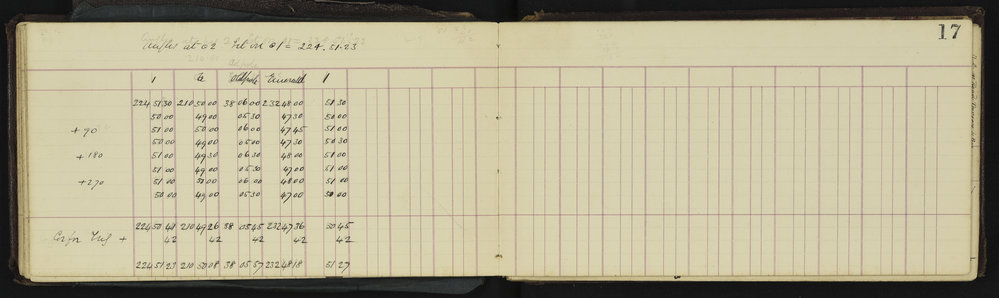 17
Angles at 02 Set on 01 = 224.51.23
1 Oldpole Emerald 1
224 51 30 210 50 00 38 06 00 232 48 00 51 30
50 00 49 00 05 30 47 30 50 00
+ 90 51 00 50 00 06 00 47 45 51 00
50 00 49 00 05 00 47 30 50 30
+ 180 51 00 49 30 06 30 48 00 51 00
51 00 49 00 05 30 47 00 51 00
+ 270 51 00 50 00 06 00 48 00 51 00
50 00 49 00 05 30 47 00 50 00
224 50 41 210 49 26 38 05 45 232 47 36 50 45
Cor for + 42 42 42 42 42
224 51 23 210 50 08 38 05 57 232 48 18 51 27